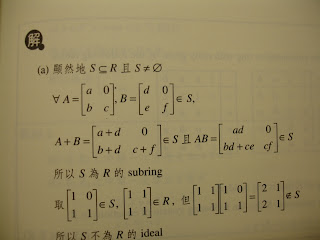 解
(a) 顯然地 S ⊆ R 且 S ≠ ∅
∀ A = [a 0; b c], B = [d 0; e f] ∈ S,
A + B = [a + d 0; b + d c + f] ∈ S 且 AB = [ad 0; bd + ce cf] ∈ S
所以 S 為 R 的 subring
取 [1 0; 1 1] ∈ S, [1 1; 1 1] ∈ R, 但 [1 1; 1 1][1 0; 1 1] = [2 1; 2 1] ∉ S
所以 S 不為 R 的 ideal